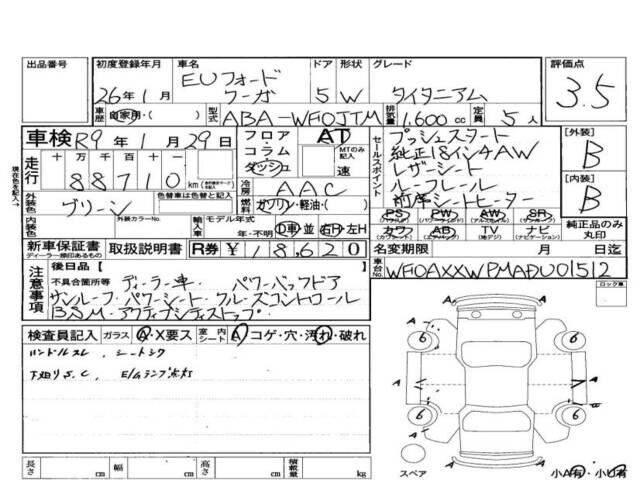 出品番号
初度登録年月 車名 ドア 形状 グレード 評価点
26年1月 EUフォード クーガ 5 W タイタニアム 3.5
車歴 自家用・( ) 型式 ABA-WF0JTM 排気量 1,600 cc 定員 5人
車検 R9年1月29日
フロア・コラム・ダッシュ AT MTのみ記入 速
セールスポイント
プッシュスタート
純正18インチAW
レザーシート
ルーフレール
前席シートヒーター
[外装] B
[内装] B
走行 十万 万 千 百 十 一
88710 km
冷房 AAC
外装色 グリーン 色替車は色替と色替前
燃料 ガソリン・軽油・( )
PS (パワステ) PW (パワーウインド) AW (アルミホイル) SR (サンルーフ)
カワ (カワシート) AB (エアバッグ) TV (地デジ) ナビ (ナビゲーション)
純正品のみ丸印
内装色 外装カラーNo. 輸入車 モデル年式 年・不明 D車 並 右H・左H
新車保証書 ディーラー捺印あるもの 取扱説明書 R券 ¥ 18,620
名変期限 月 日迄
注意事項
後日品【 】
不具合箇所等 ディーラー車 パワーバックドア
サンルーフ・パワーシート クルーズコントロール
BSM・アクティブシティストップ
車台No. WF0AXXWPMADU01512
ロック車
検査員記入 ガラス A・X要ス 室内シート A コゲ・穴・汚れ・破れ
ハンドルスレ、シートシワ
下廻りS.C、E/Gランプ点灯
A
A
6 6
A A
6 6
A A
スペア 小A有・小U有
長さ cm 幅 cm 高さ cm 積載量 kg
現在色を記入→